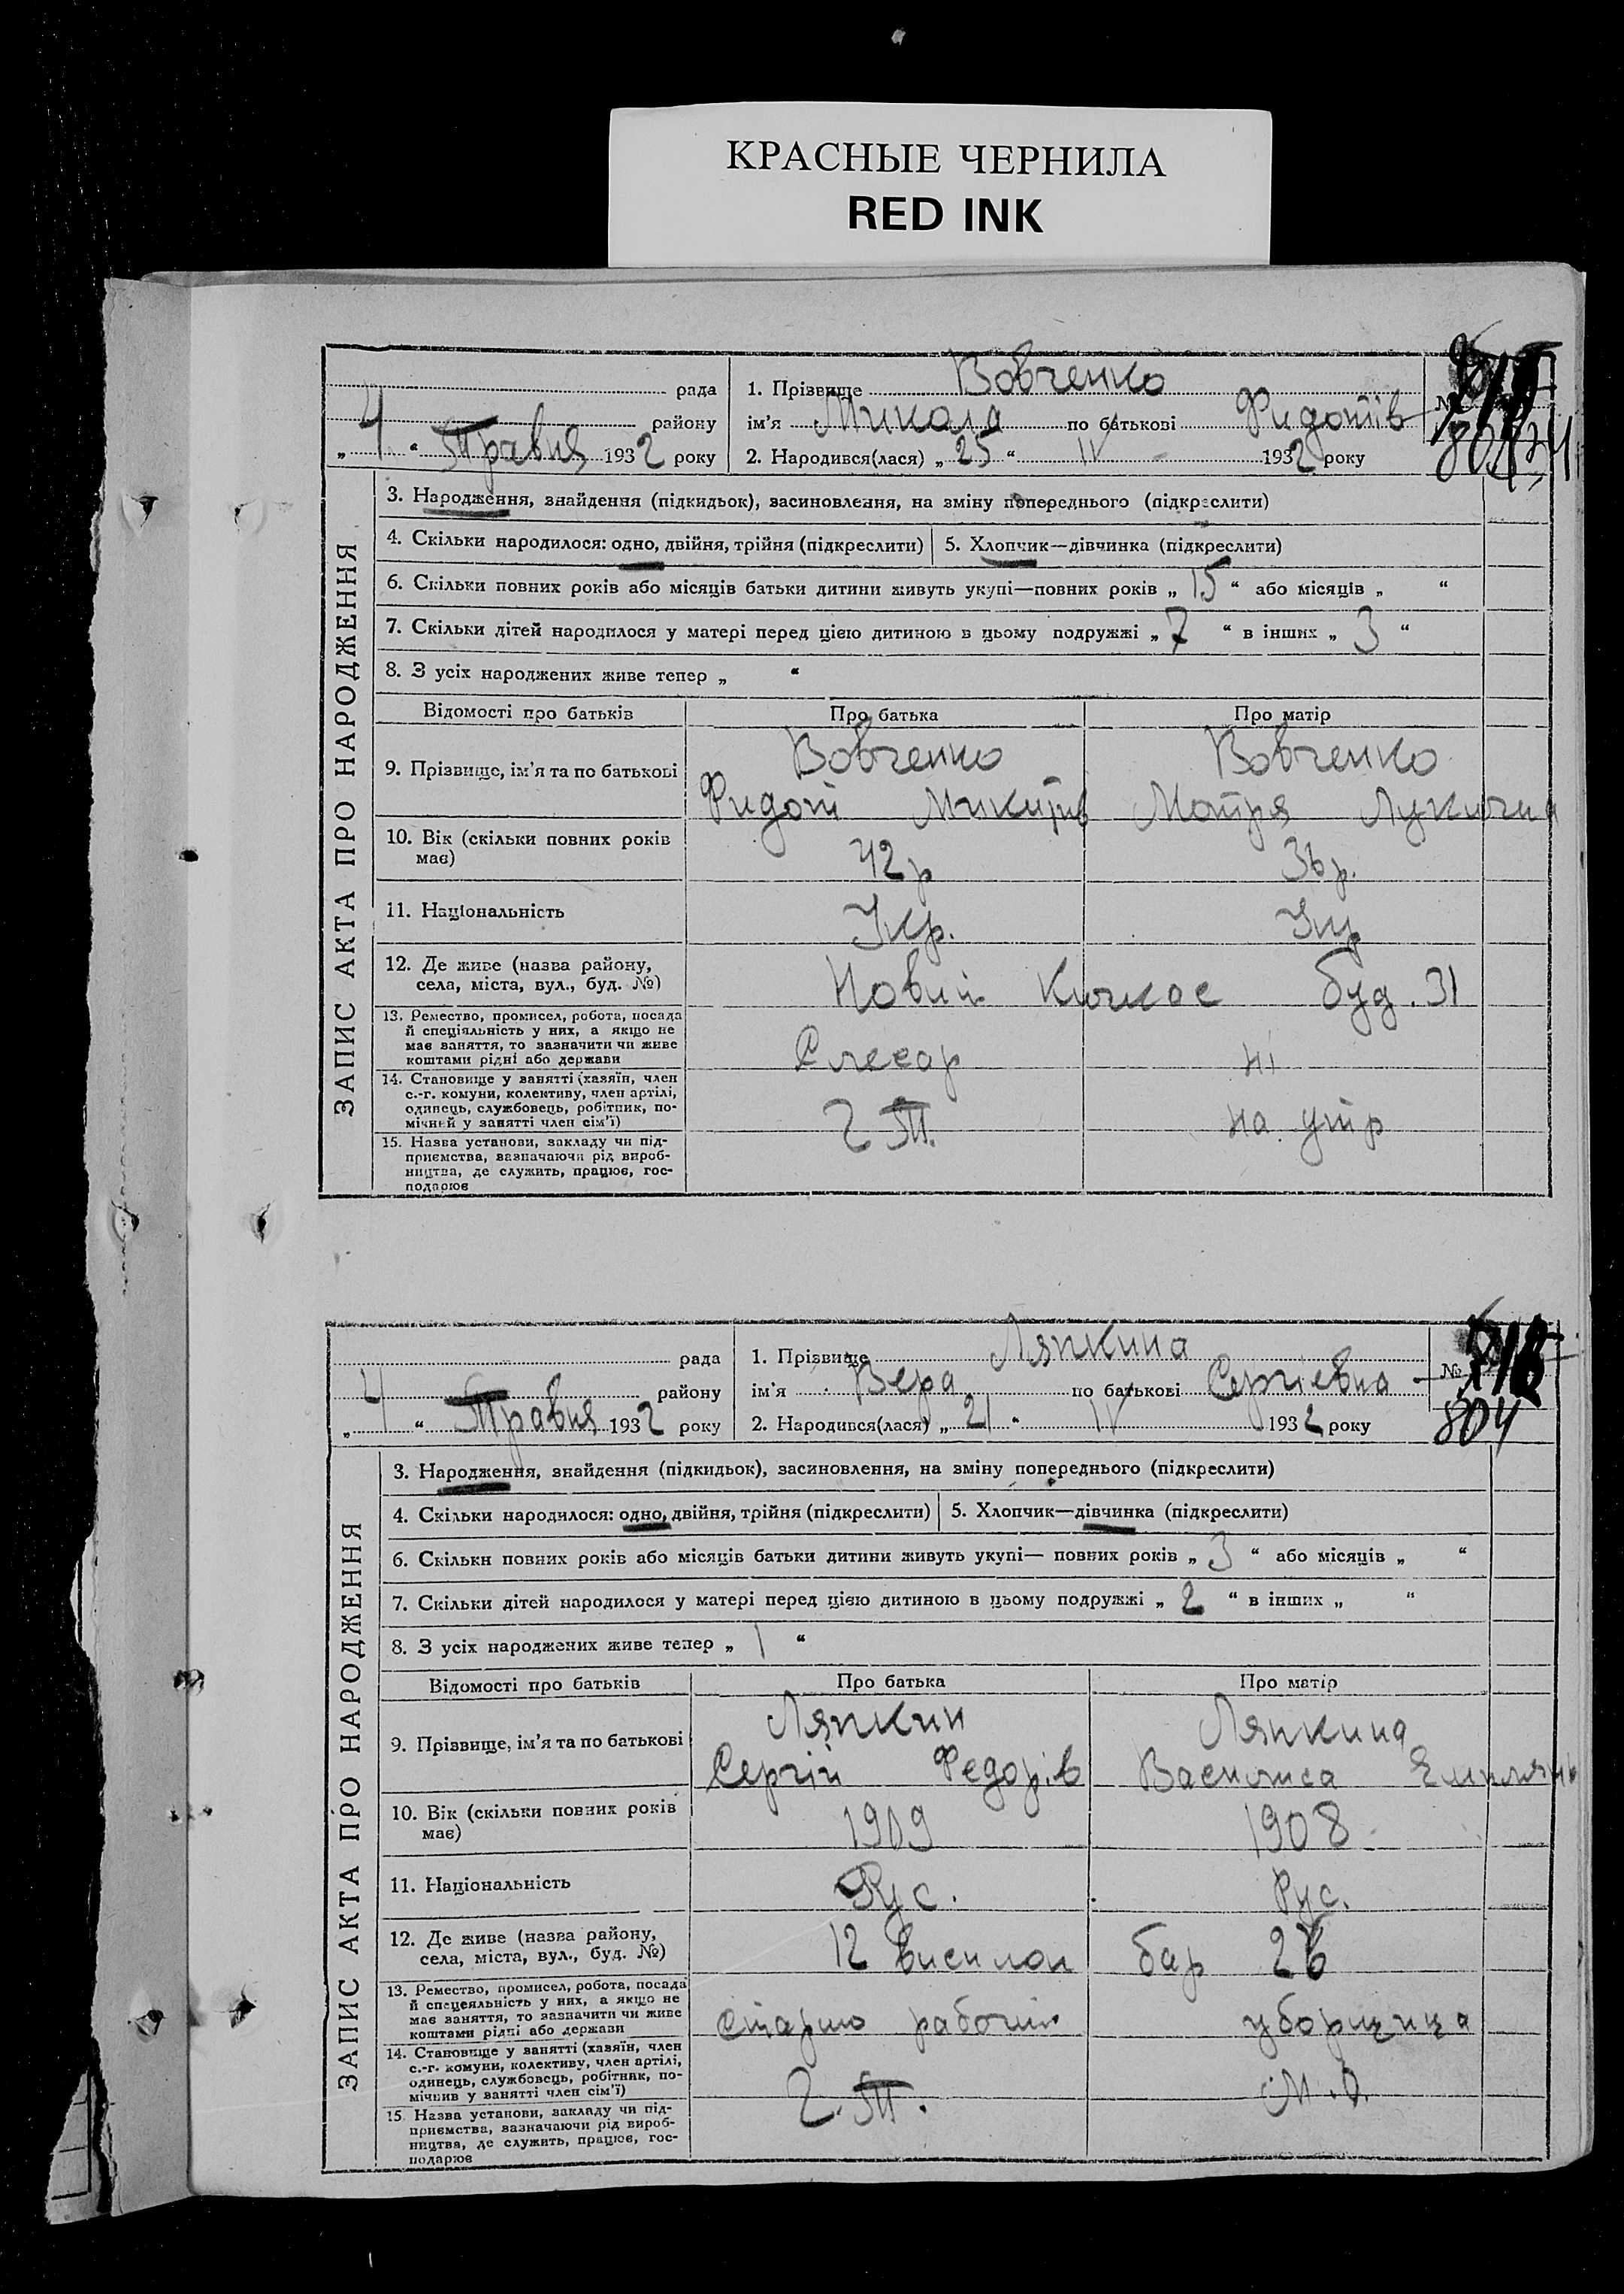 КРАСНЫЕ ЧЕРНИЛА
RED INK
ЗАПИС АКТА ПРО НАРОДЖЕННЯ
рада
району
„ 4 “ Травня 1932 року
1. Прізвище Вовченко
ім'я Микола по батькові Фидотів
2. Народився(лася) „ 25 “ IV 1932 року
№
3. Народження, знайдення (підкидьок), засиновлення, на зміну попереднього (підкреслити)
4. Скільки народилося: одно, двійня, трійня (підкреслити) 5. Хлопчик—дівчинка (підкреслити)
6. Скільки повних років або місяців батьки дитини живуть укупі—повних років „ 15 “ або місяців „ “
7. Скільки дітей народилося у матері перед цією дитиною в цьому подружжі „ 7 “ в інших „ 3 “
8. З усіх народжених живе тепер „ “
Відомості про батьків Про батька Про матір
9. Прізвище, ім'я та по батькові
Вовченко
Фидот Микитів
Вовченко
Мотря Лукична
10. Вік (скільки повних років
має)
42 р
36 р.
11. Національність Укр. Укр
12. Де живе (назва району,
села, міста, вул., буд. №)
Новий Кичкас буд. 31
13. Ремество, промисел, робота, посада
й спеціяльність у них, а якщо не
має заняття, то зазначити чи живе
коштами рідні або держави
Слесар
ні
14. Становище у занятті (хазяїн, член
с.-г. комуни, колективу, член артілі,
одинець, службовець, робітник, по-
мічний у занятті член сім'ї)
на утр
15. Назва установи, закладу чи під-
приємства, зазначаючи рід вироб-
ництва, де служить, працює, гос-
подарює
ЗАПИС АКТА ПРО НАРОДЖЕННЯ
рада
району
„ 4 “ Травня 1932 року
1. Прізвище Ляпкина
ім'я Вера по батькові Сергієвна
2. Народився(лася) „ 21 “ IV 1932 року
№
804
3. Народження, знайдення (підкидьок), засиновлення, на зміну попереднього (підкреслити)
4. Скільки народилося: одно, двійня, трійня (підкреслити) 5. Хлопчик—дівчинка (підкреслити)
6. Скільки повних років або місяців батьки дитини живуть укупі— повних років „ 3 “ або місяців „ “
7. Скільки дітей народилося у матері перед цією дитиною в цьому подружжі „ 2 “ в інших „ “
8. З усіх народжених живе тепер „ 1 “
Відомості про батьків Про батька Про матір
9. Прізвище, ім'я та по батькові
Ляпкин
Сергій Федорів
Ляпкина
Василиса
10. Вік (скільки повних років
має)
1909
1908
11. Національність Рус. Рус.
12. Де живе (назва району,
села, міста, вул., буд. №)
12 бар 26
13. Ремество, промисел, робота, посада
й спецеяльність у них, а якщо не
має заняття, то зазначити чи живе
коштами рідні або держави
рабочий
уборщица
14. Становище у занятті (хазяїн, член
с.-г. комуни, колективу, член артілі,
одинець, службовець, робітник, по-
мічнив у занятті член сім'ї)
15. Назва установи, закладу чи під-
приємства, зазначаючи рід вироб-
ництва, де служить, працює, гос-
подарює